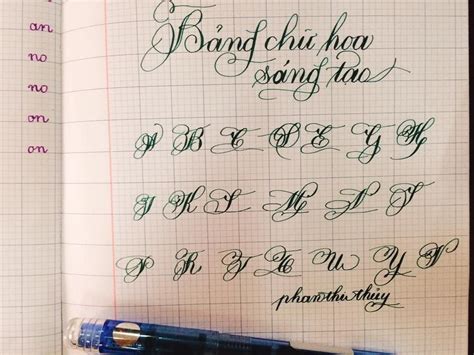 an
no
no
on
on
Bảng chữ hoa
sáng tạo
A B C S E G H
I K L M N T
P R T X U Y V
phanthuthủy